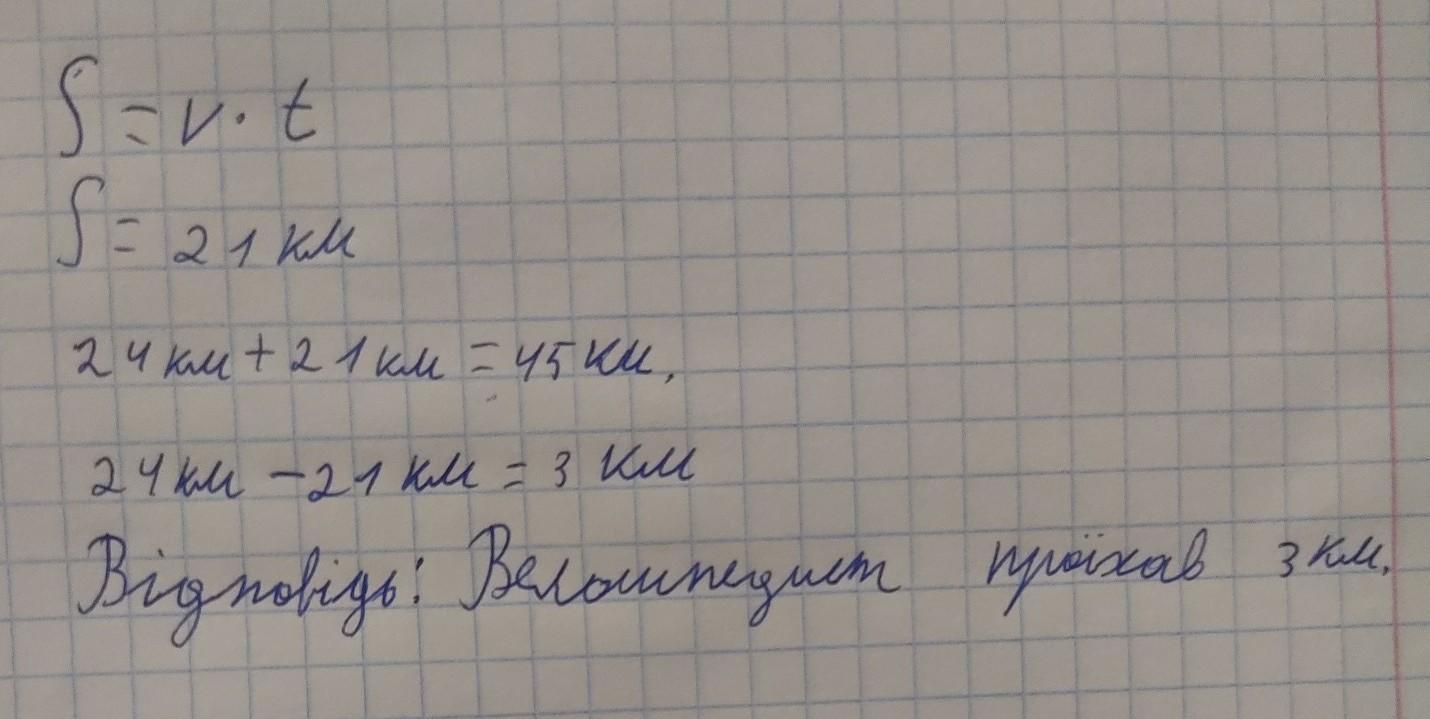 S = v · t
S = 21 км
24 км + 21 км = 45 км.
24 км - 21 км = 3 км
Відповідь: Велосипедист проїхав 3 км.